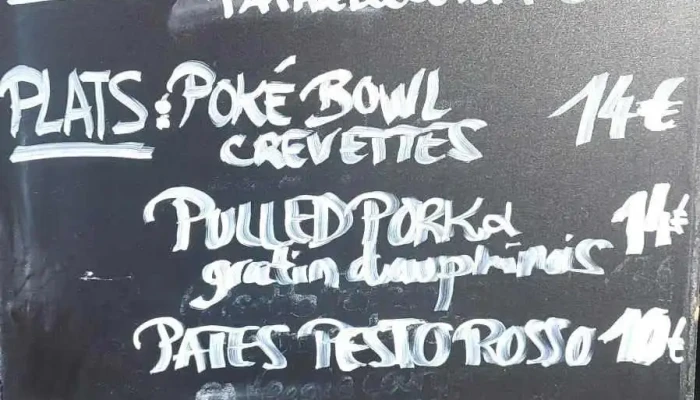 PLATS : POKÉ BOWL 14€
CREVETTES
PULLED PORK & 14€
gratin dauphinois
PATES PESTO ROSSO 10€